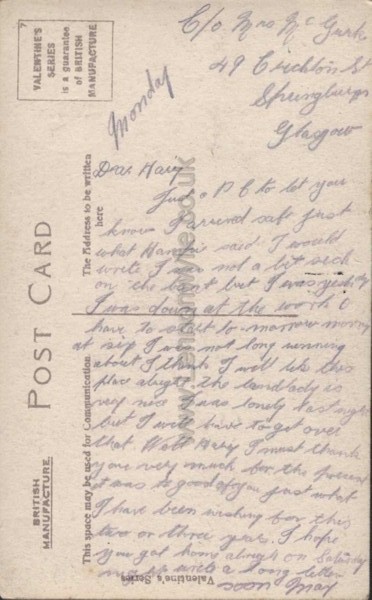 C/o Mrs Mc Gurk
49 Crichton St
Springburn
Glasgow
Monday
Dear Harry
Just a P C to let you
know I arrived safe just
what said I would
write I was not a bit sick
on the boat but I was
I was down at the work I
have to start to morrow morning
at six I was not long running
about I think I will like this
place alright the landlady is
very nice I was lonely last night
but I will have to get over
that Well Harry I must thank
you very much for the present
it was so good of you just what
I have been wishing for this
two or three years. I hope
you got home alright on Saturday
write a long letter
soon May
VALENTINE'S
SERIES
is a guarantee
of BRITISH
MANUFACTURE.
POST CARD
BRITISH
MANUFACTURE.
The Address to be written
here
This space may be used for Communication.
Valentine's Series